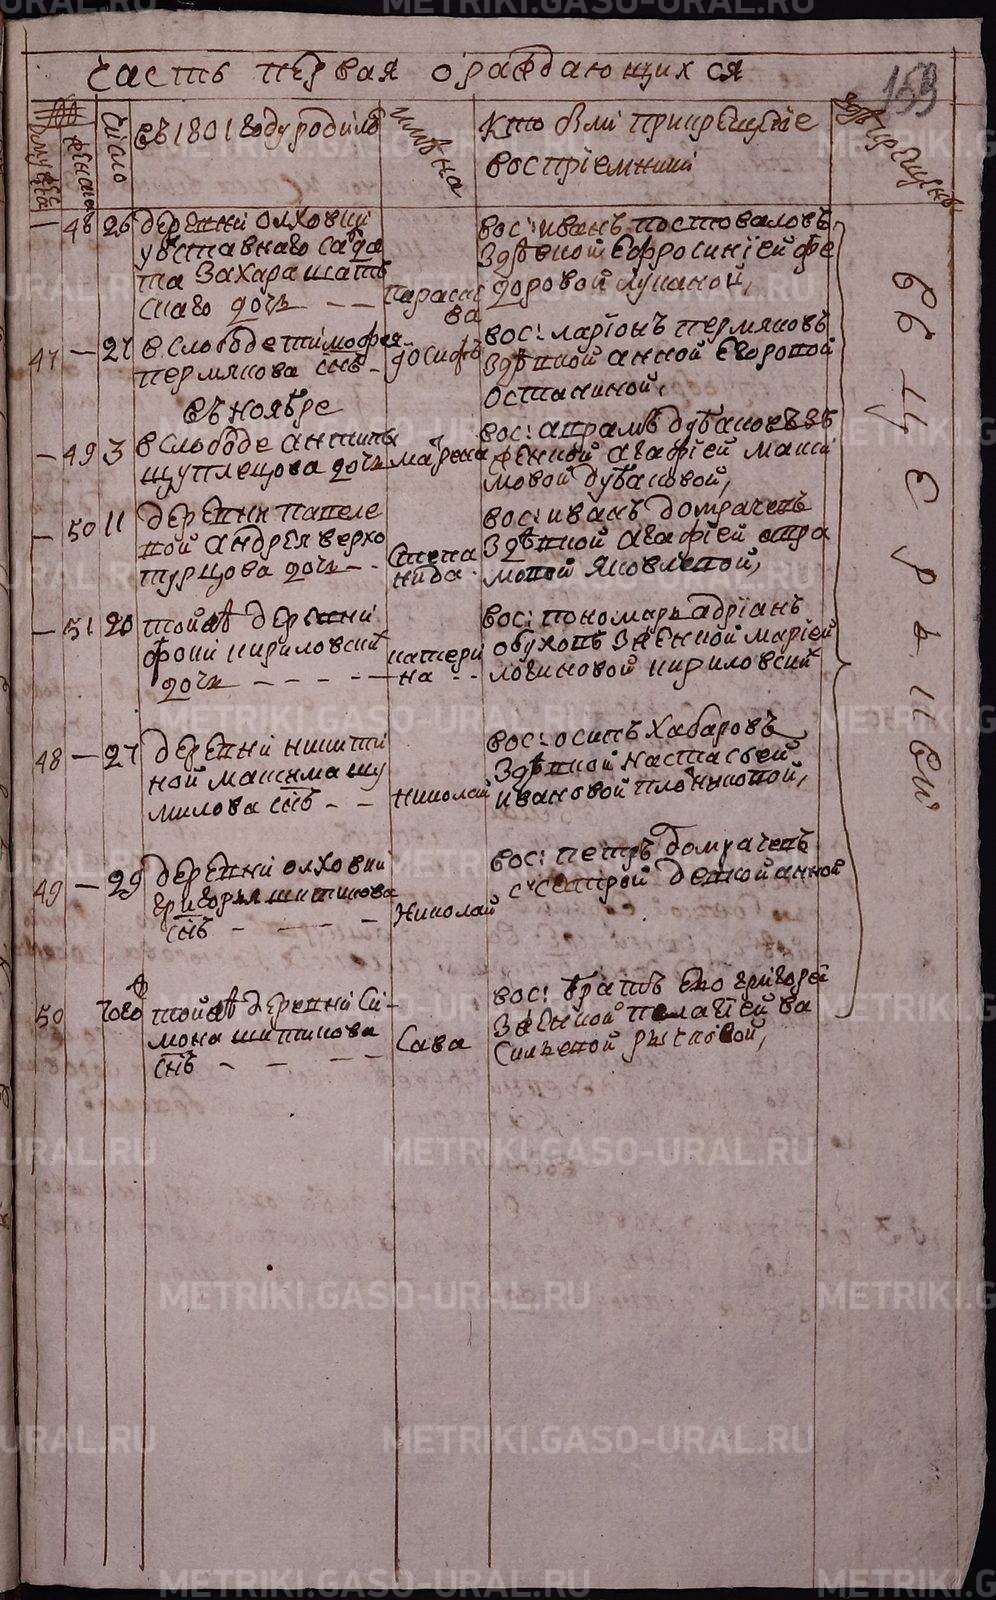 часть первая ораждающихся
153
мужеска
женска
число
въ 1801 году родилос
имяна
кто были прикрещеніе
воспріемники
гдѣ крещены
48 26 деревни олховки
у отставнаго салда
та Захара шать
скаго дочь
параске
ва
вос: иванъ постоваловъ
з дѣвкой Ефросиніей Фе
доровой лукиной,
47 27 в слободе тимофея
пермякова снъ
досифъ
вос: ларіонъ пермяковъ
з дѣвкой анной Егоровой
останиной,
въ ноябре
49 3 в слободе антипы
щуплецова дочь
марема
вос: апрамъ дубановъ з
женкой агафіей макси
мовой дубановой,
50 11 деревни
андрея верхо
турцова дочь
степа
нида
вос: иванъ домрачевъ
з дѣвкой агафіей
яковлевой,
51 20 той ж деревни
кириловскіх
дочь
катери
на
вос: пономарь адріанъ
обуховъ з женкой маріей
логиновой кириловскій
48 27 деревни никити
ной максима шу
милова снъ
николай
вос: осипъ хабаровъ
з дѣвкой настасьей
ивановой плотниковой,
49 29 деревни олховки
григорья шипикова
снъ
николай
вос: петръ домрачевъ
с сестрой девкой анной
50 того ж той ж деревни си
мона шипикова
снъ
Сава
вос: братъ ево григорей
з женкой пелагіей ва
сильевой
въ церькви